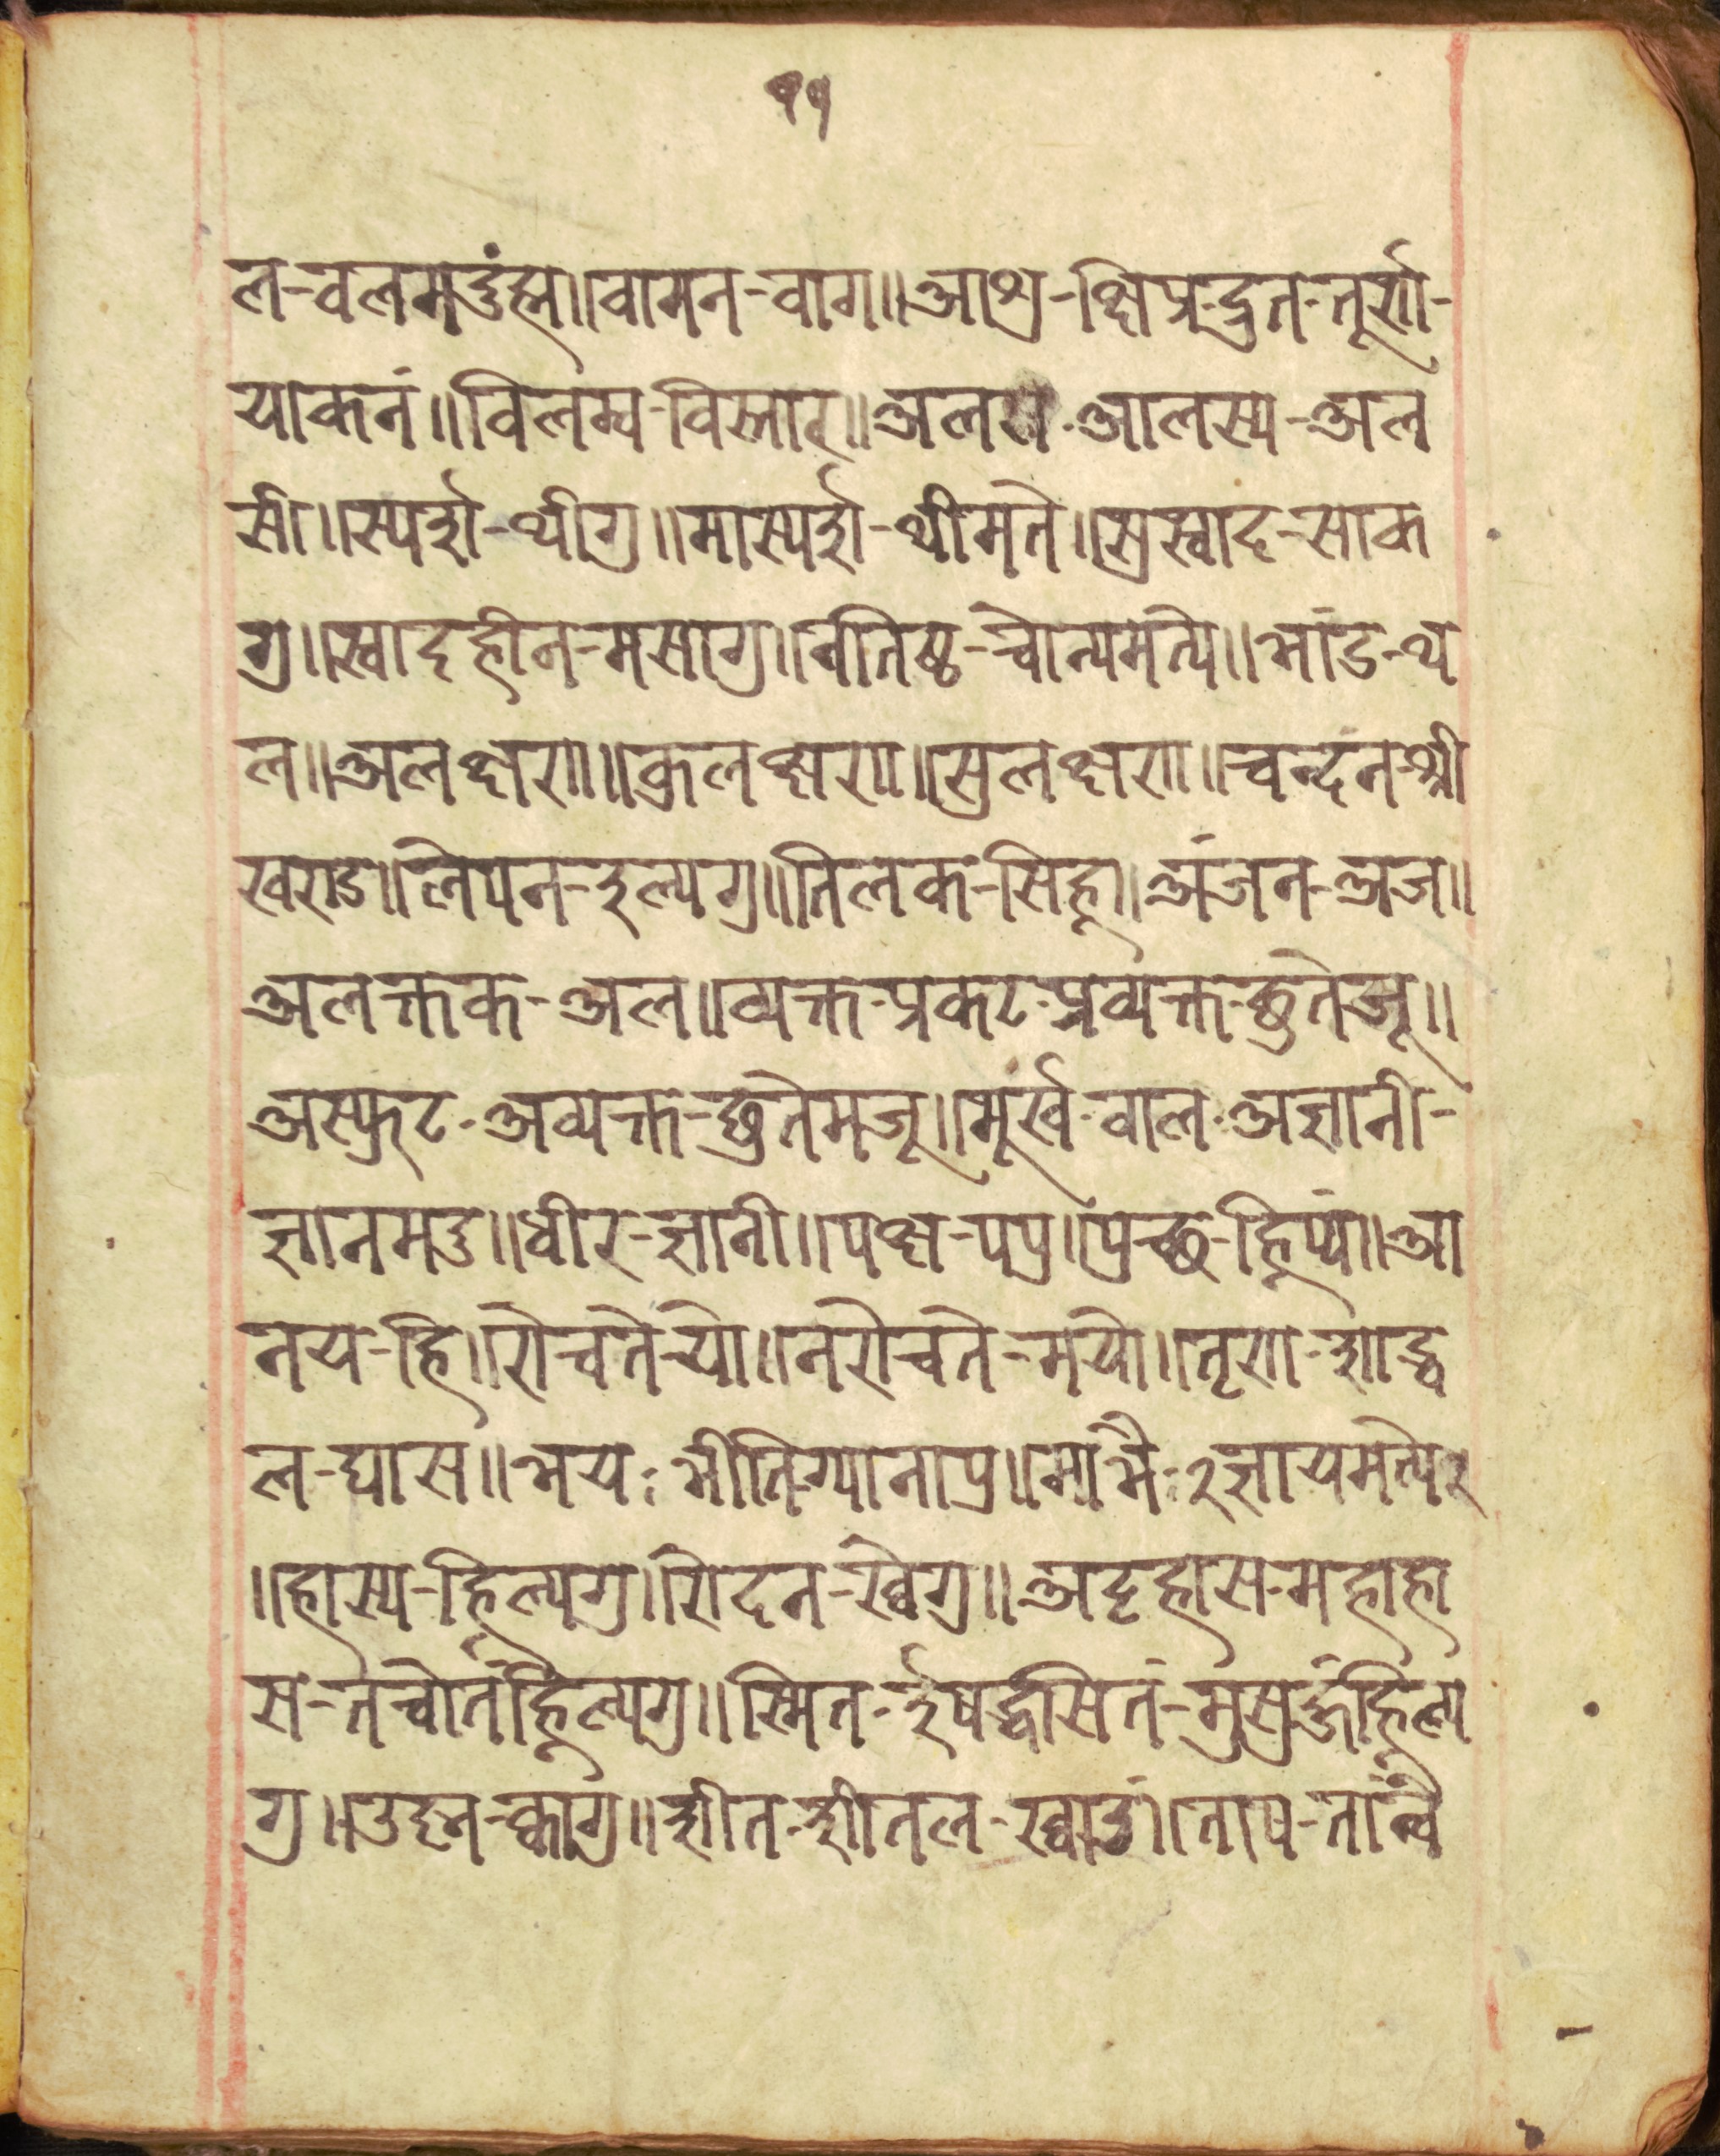 ११
ल-वलमडुंह्म॥वामन-वाग॥आशु-क्षिप्र-द्रुत-तूर्ण-
याकनं॥विलम्व-विस्तार॥अलस-आलस्य-अल
सी॥स्पर्श-थीगु॥मास्पर्श-थीमते॥सुस्वाद-साक
गु॥स्वादहीन-मसागु॥नतिष्ठ-च्वोन्यमत्ये॥भांड-थ
ल॥अलक्षण॥कुलक्षण॥सुलक्षण॥चन्दन-श्री
खण्ड॥लेपन-इल्यगु॥तिलक-सिह्॥अंजन-अज॥
अलक्तक-अल॥व्यक्त-प्रकट-प्रव्यक्त-छुतेजू॥
अस्फुट-अव्यक्त-छुतेमजू॥मूर्ख-वाल-अज्ञानी-
ज्ञानमदु॥धीर-ज्ञानी॥पक्ष-पपु॥पुच्छ-ह्प्यिं॥आ
नय-हि॥रोचते-यो॥नरोचते-मयो॥तृण-शाद्व
ल-घास॥भय-भीति-ग्यानापु॥माभैः२ज्ञायमत्ये२
॥हास्य-ह्लिल्यगु॥रोदन-ख्वेगु॥अट्टहास-महाहा
स-तच्वोतंह्लिल्यगु॥स्मित-ईषद्धसितं-मुसुह्नंह्लिल्य
गु॥उष्न-क्वागु॥शीत-शीतल-ख्वाउं॥ताप-तांन्वै